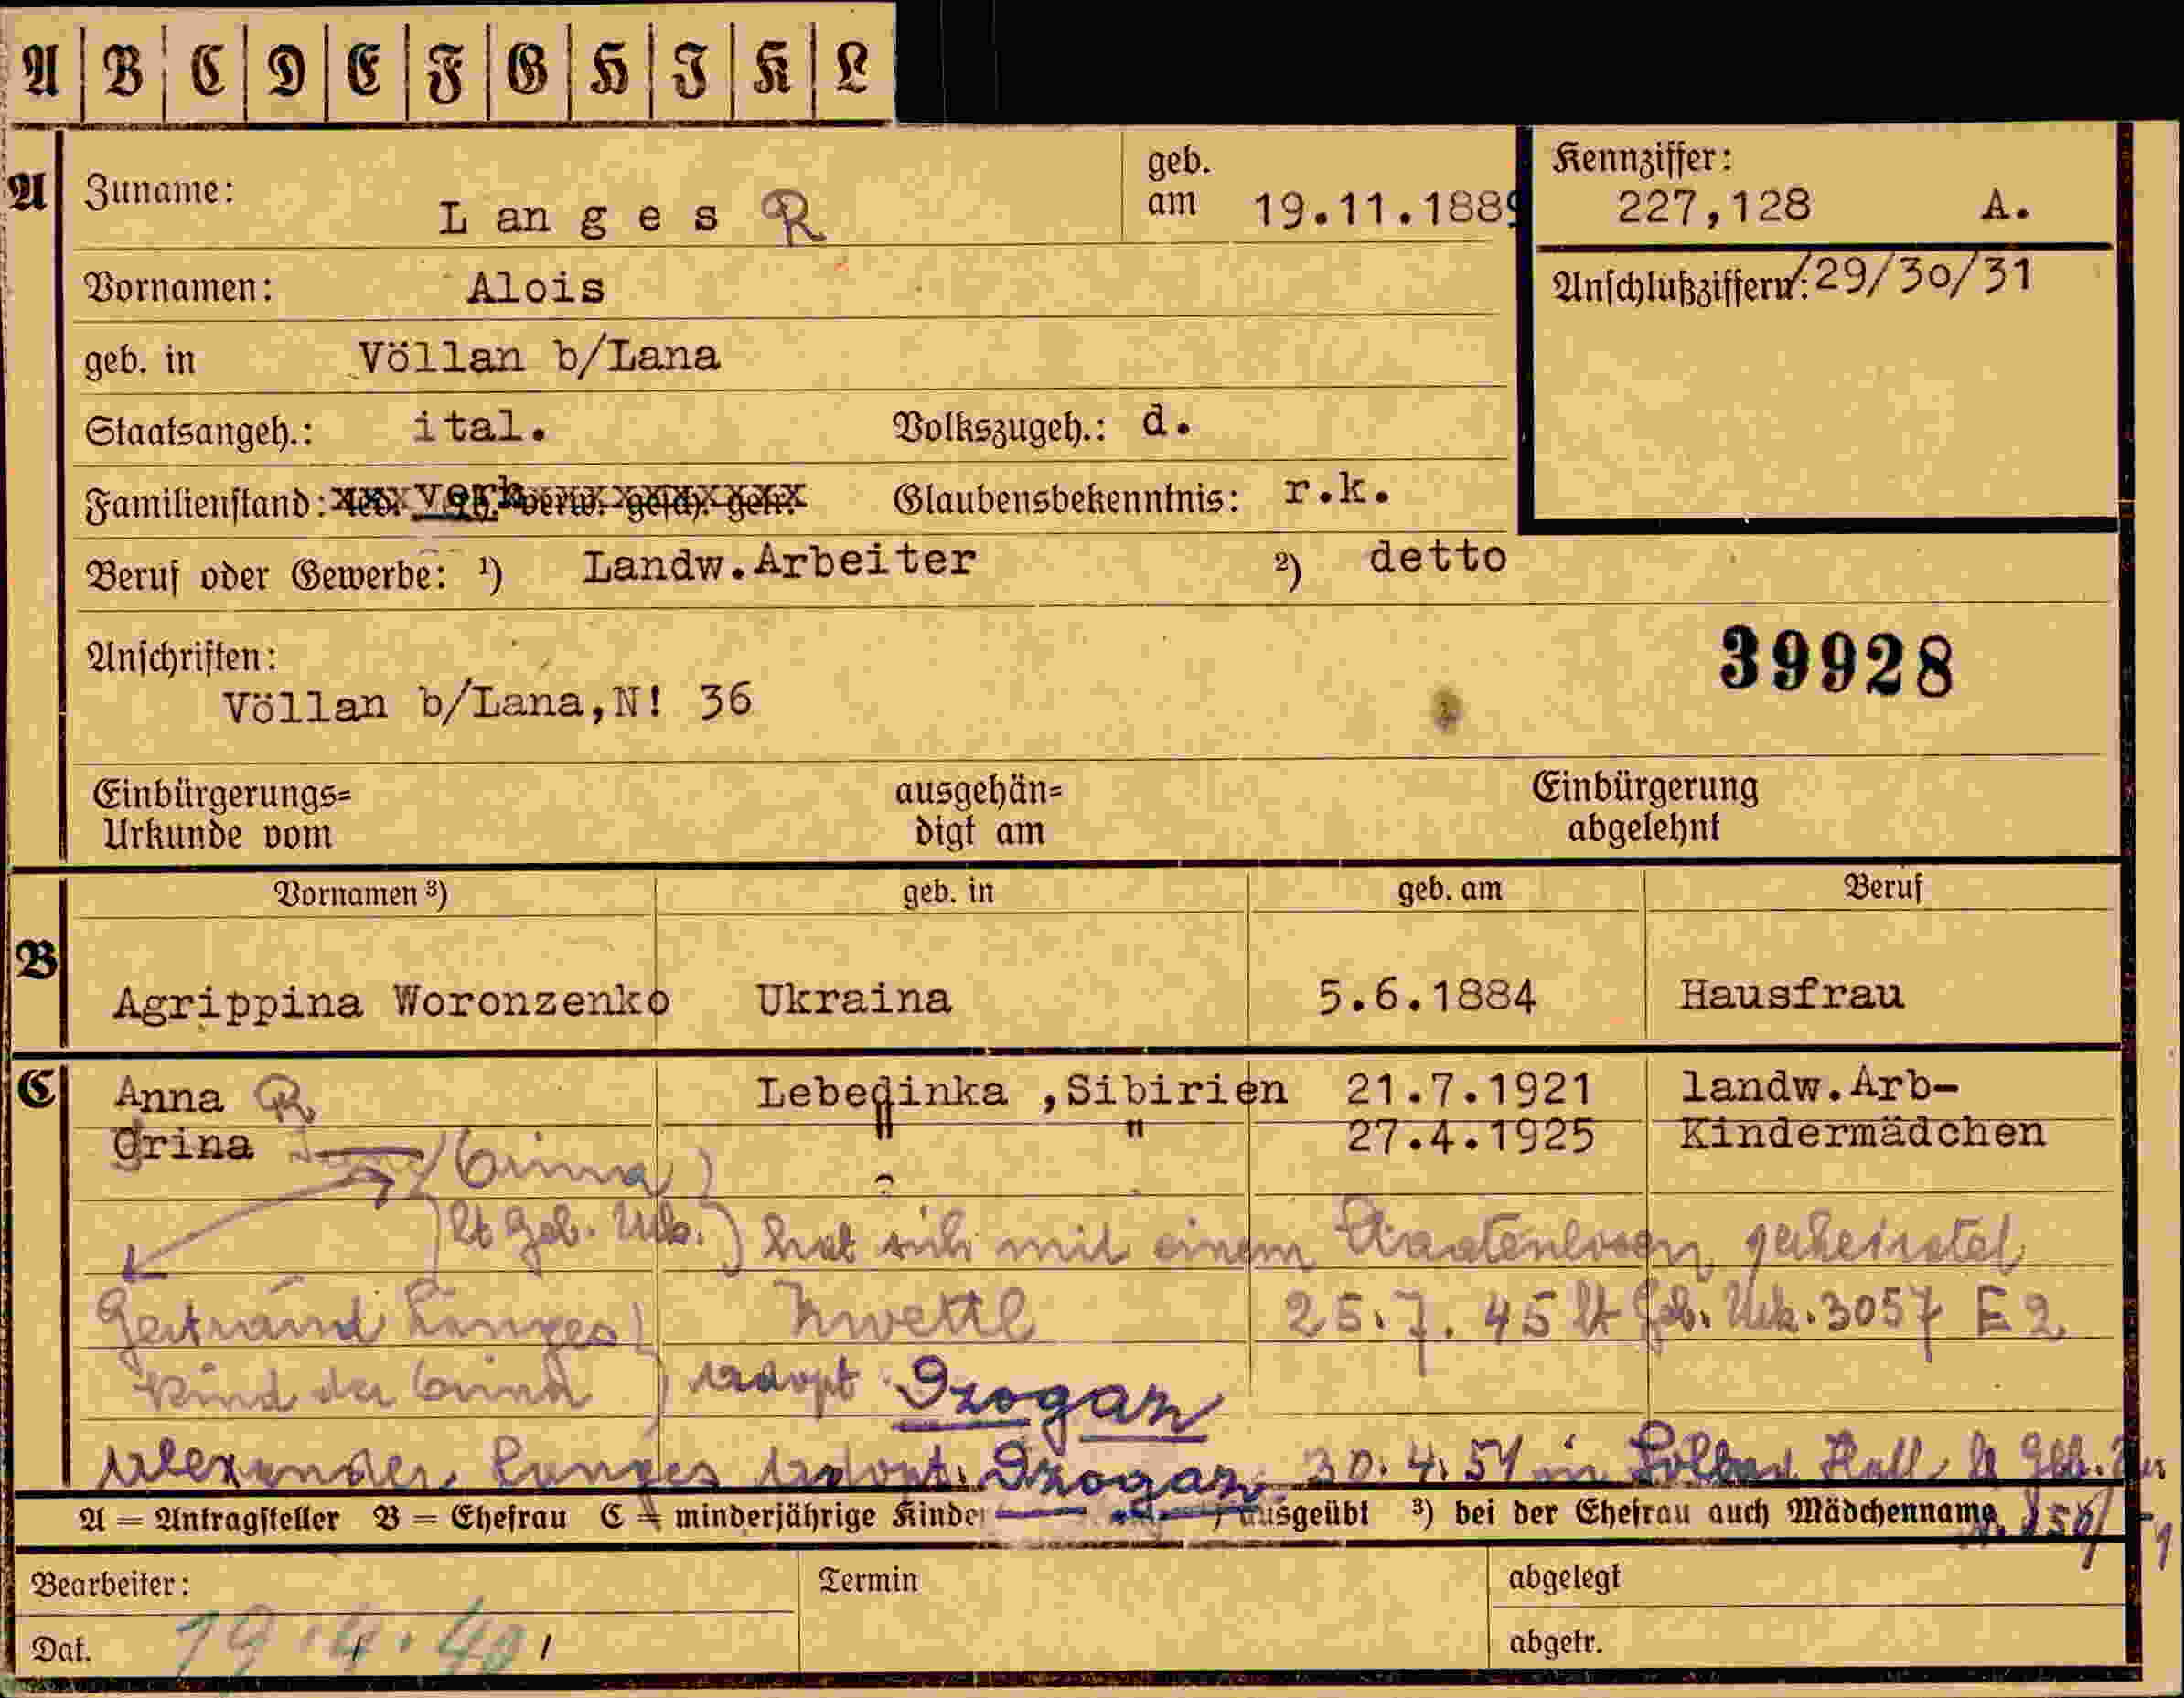 A B C D E F G H J K L
A Zuname: L an g e s R geb. am 19.11.1889 Kennziffer: 227,128 A.
Vornamen: Alois Anschlußziffern: /29/30/31
geb. in Völlan b/Lana
Staatsangeh.: ital. Volkszugeh.: d.
Familienstand: verh. Glaubensbekenntnis: r.k.
Beruf oder Gewerbe: 1) Landw.Arbeiter 2) detto
Anschriften: 39928
Völlan b/Lana,N! 36
Einbürgerungs= ausgehän= Einbürgerung
Urkunde vom digt am abgelehnt
Vornamen 3) geb. in geb. am Beruf
B Agrippina Woronzenko Ukraina 5.6.1884 Hausfrau
C Anna R Lebedinka ,Sibirien 21.7.1921 landw.Arb-
Grina " " 27.4.1925 Kindermädchen
lt Geb. Urk.) hat sich mit einem Staatenlosen geheiratet
Gertraud Langes Zwettl 25.7.45 lt Geb. Urk. 3057 E 2
Kind der adopt
Alexander Langes adopt. 30.4.51 in Solbad Hall lt Geb.
A = Antragsteller B = Ehefrau C = minderjährige Kinder ausgeübt 3) bei der Ehefrau auch Mädchenname
Bearbeiter: Termin abgelegt
Dat. 19.4.40 abgetr.